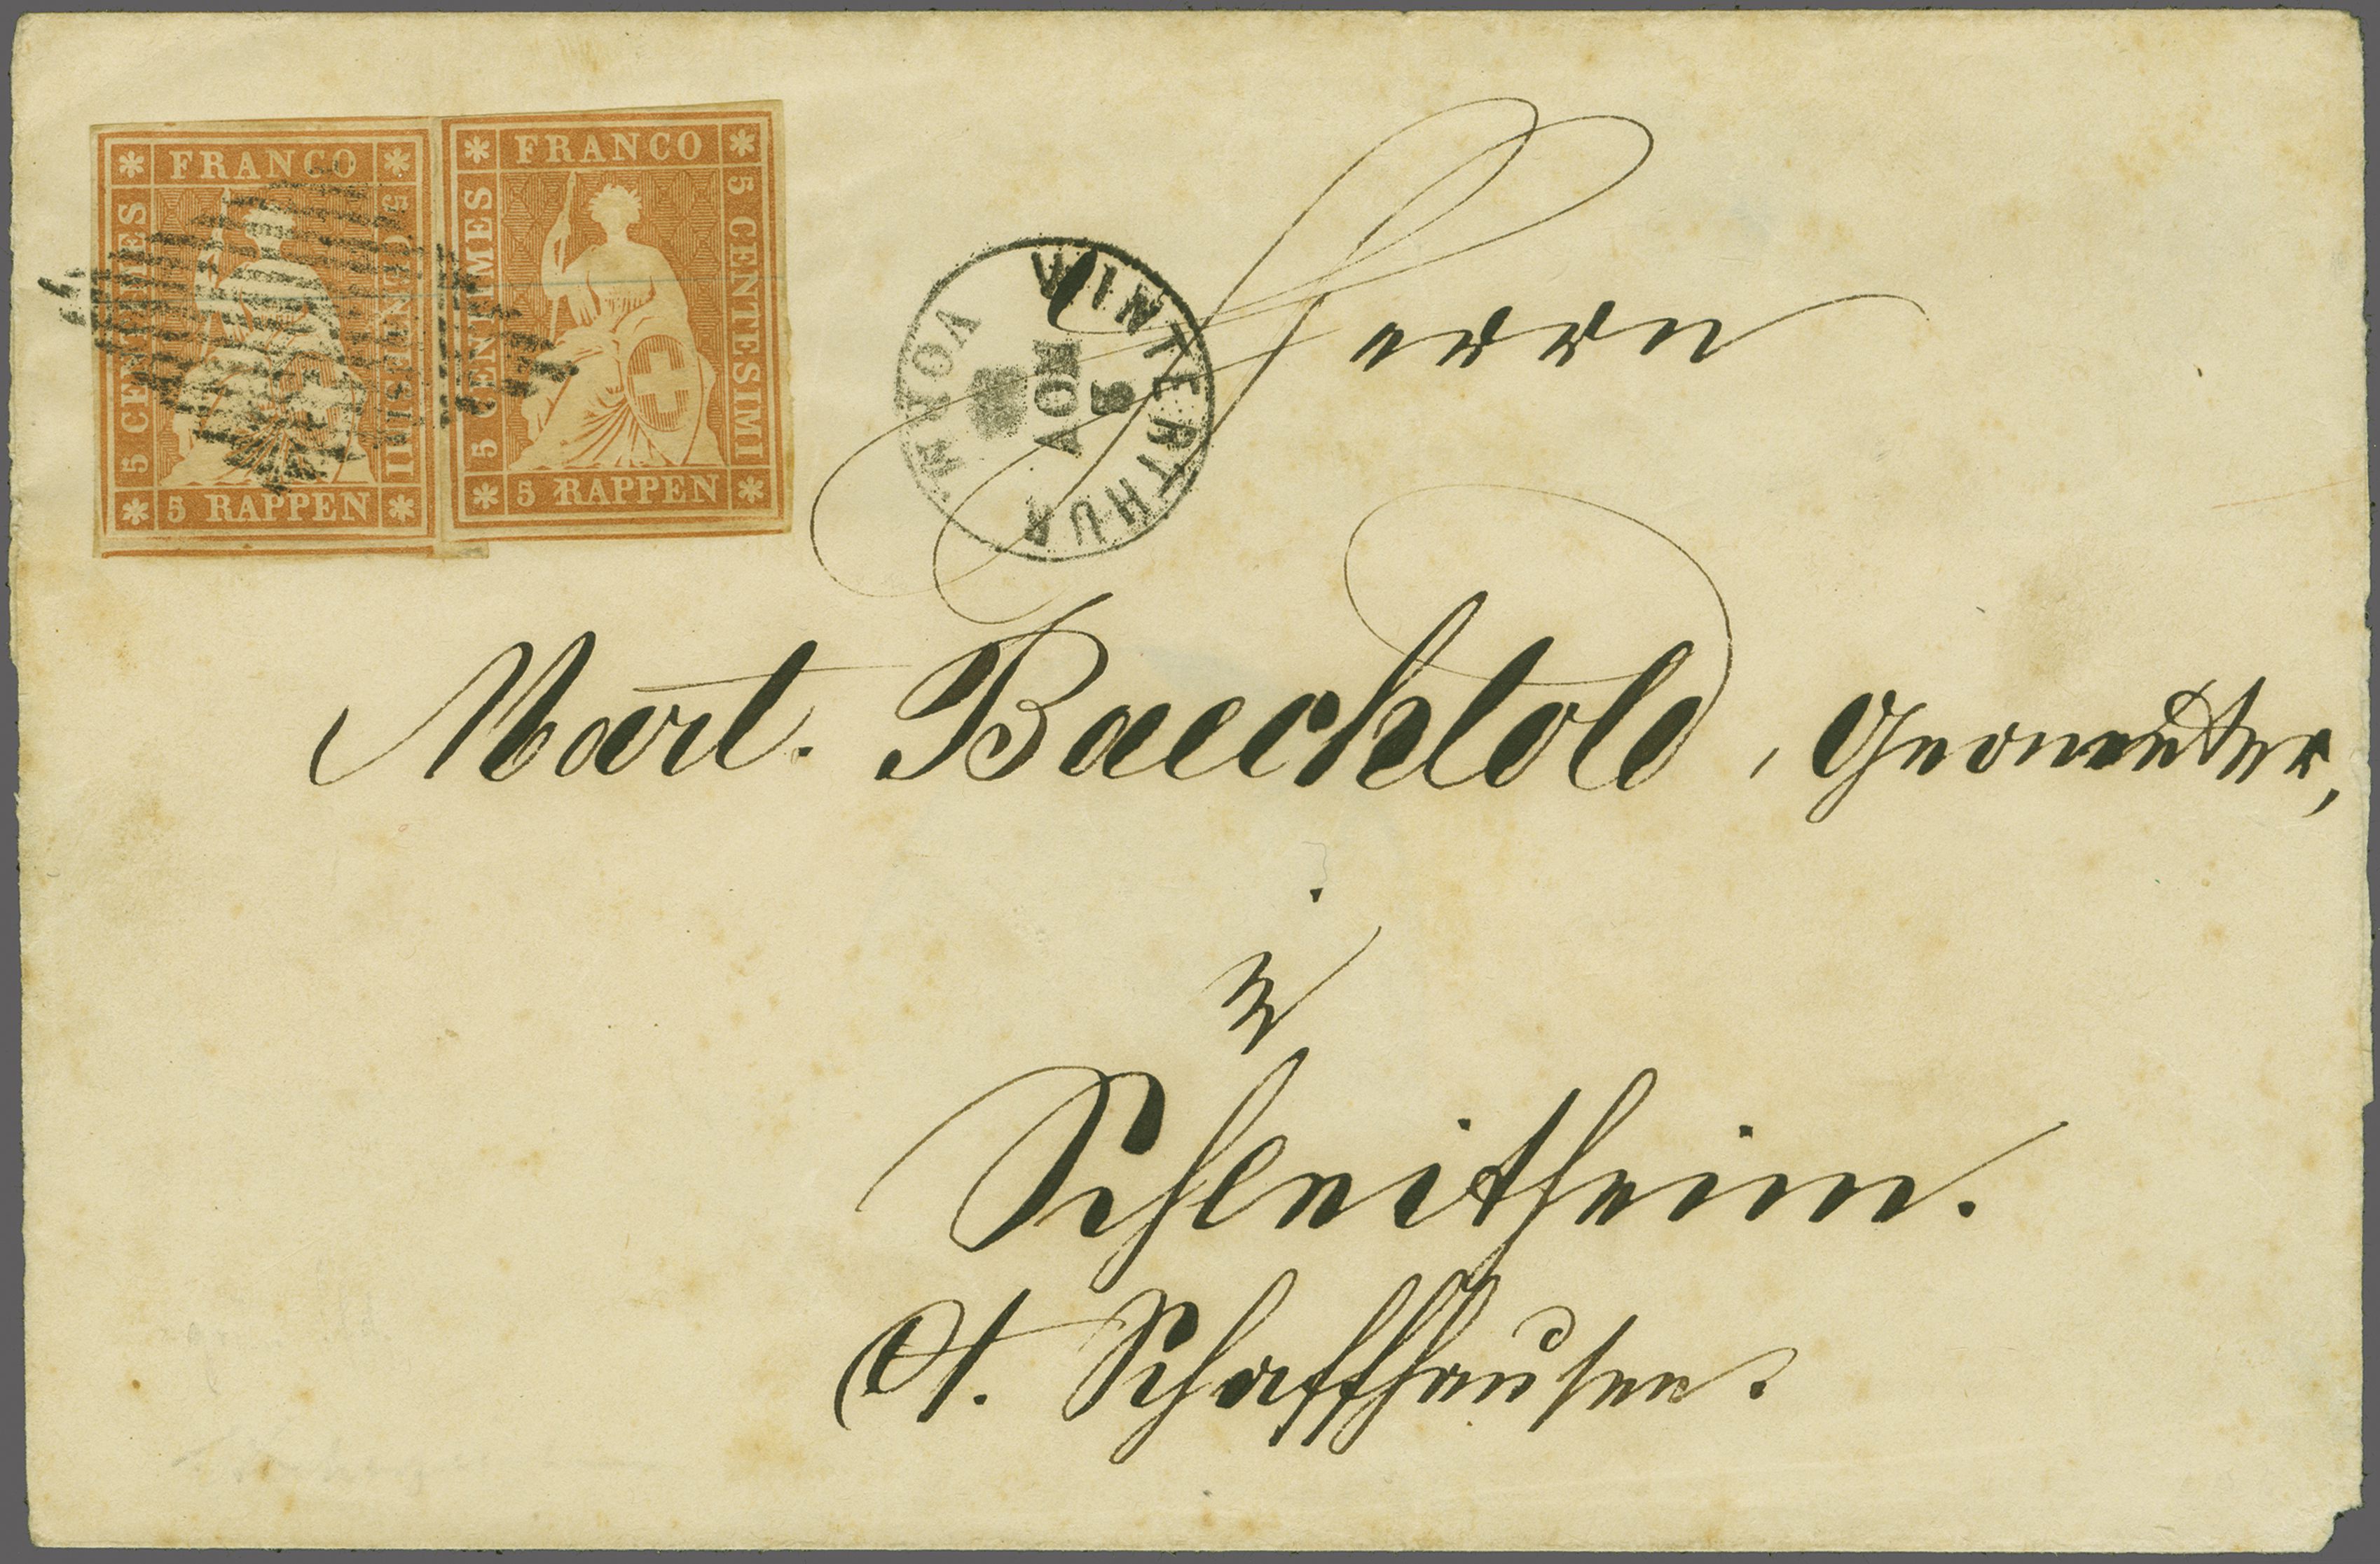 FRANCO
5 CENTIMES
5 CENTESIMI
5 RAPPEN
FRANCO
5 CENTIMES
5 CENTESIMI
5 RAPPEN
WINTERTHUR
5
AOU
Herrn
Mart. Baechtold, Geometer,
in
Schleitheim.
Ct. Schaffhausen.